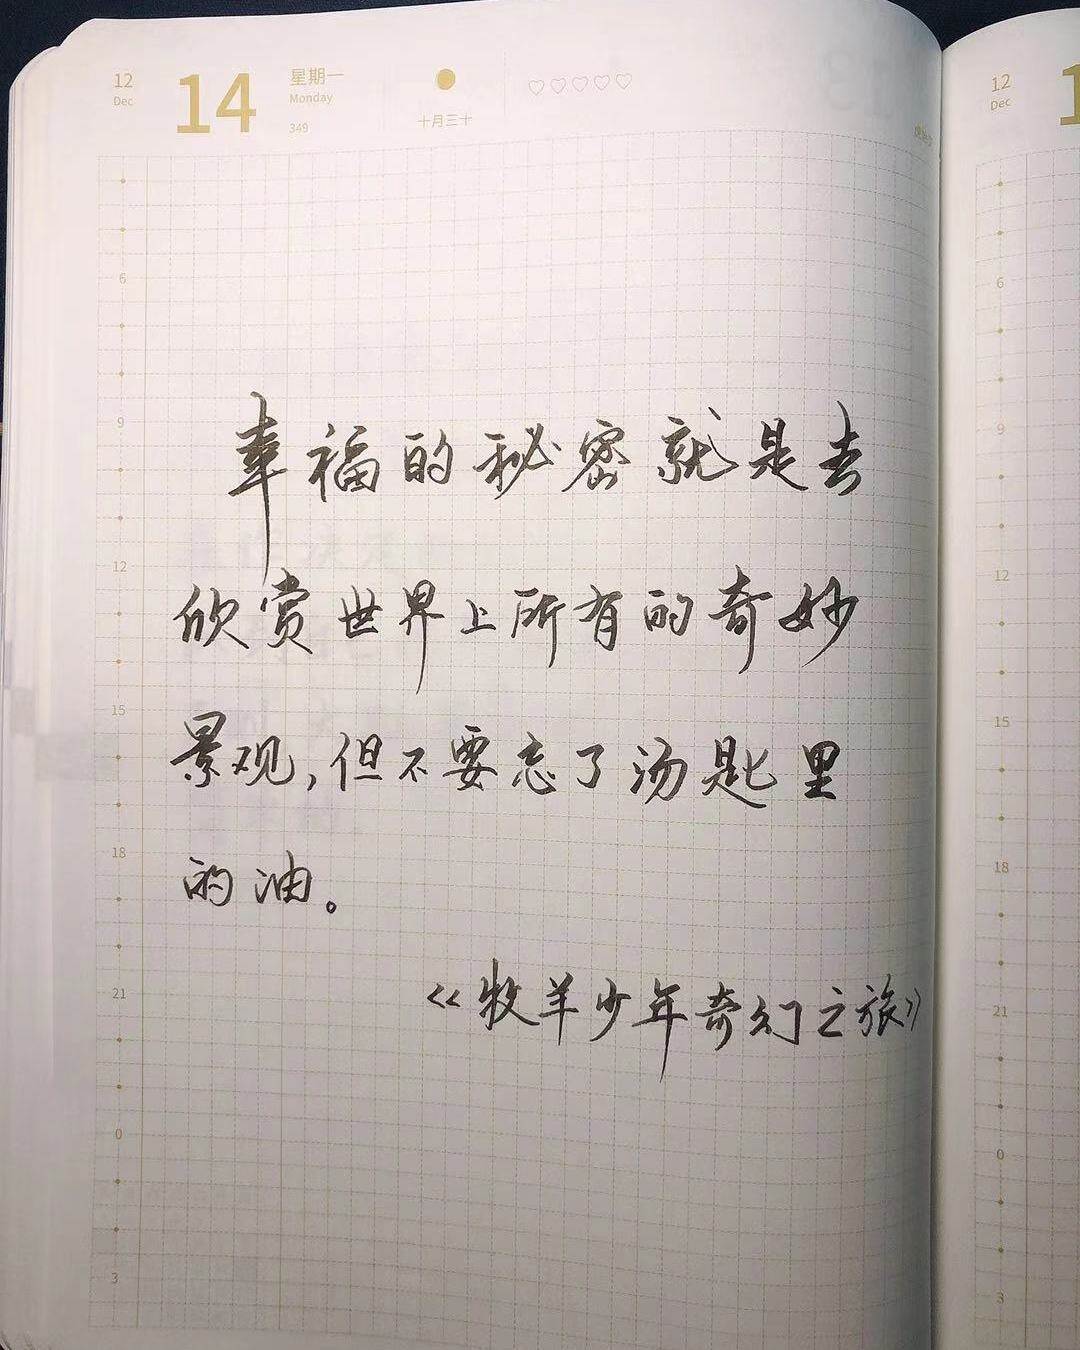 12 Dec 14 星期一 Monday 349 十月三十
12 Dec
6
9
幸福的秘密就是去
12
欣赏世界上所有的奇妙
15
景观,但不要忘了汤匙里
18
的油。
21
《牧羊少年奇幻之旅》
0
3
6
9
12
15
18
21
0
3